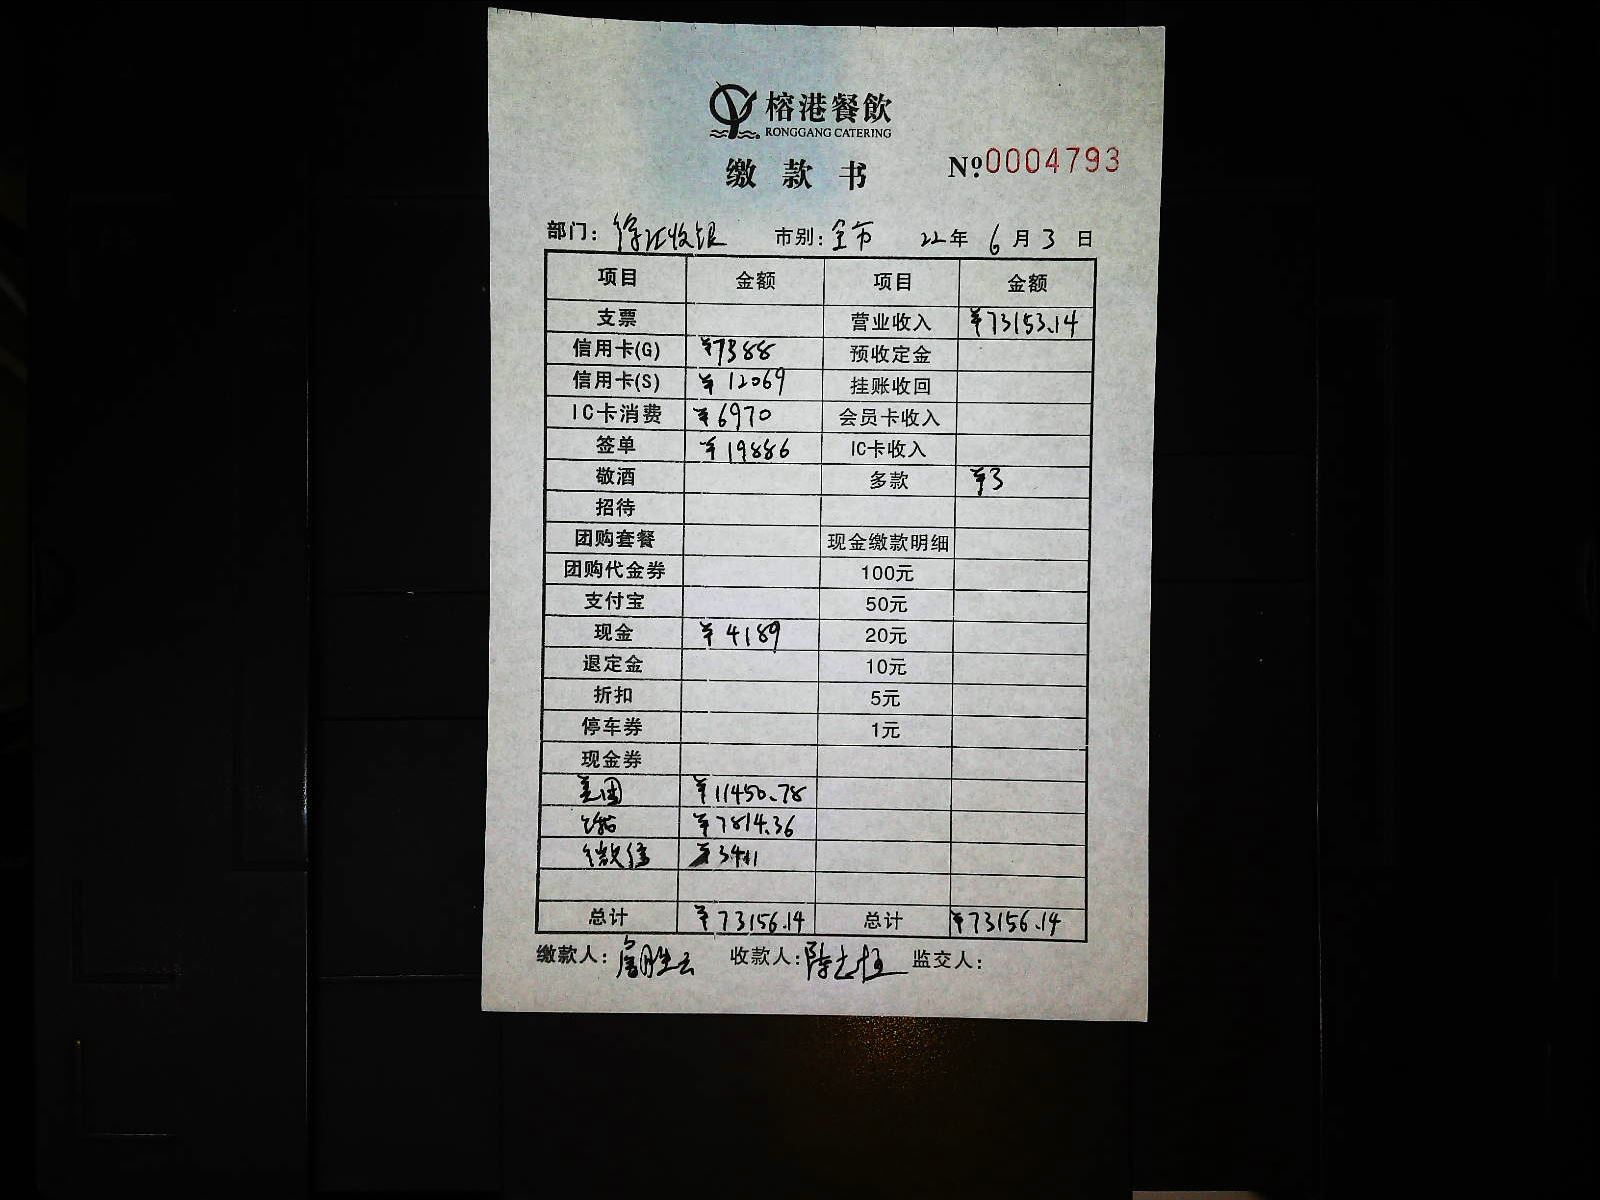 榕港餐飲
RONGGANG CATERING
缴款书 №0004793
部门：徐汇收银 市别：全市 22年6月3日
项目 金额 项目 金额
支票 营业收入 ¥73153.14
信用卡(G) ¥7388 预收定金
信用卡(S) ¥12069 挂账收回
IC卡消费 ¥6970 会员卡收入
签单 ¥19886 IC卡收入
敬酒 多款 ¥3
招待
团购套餐 现金缴款明细
团购代金券 100元
支付宝 50元
现金 ¥4189 20元
退定金 10元
折扣 5元
停车券 1元
现金券
美团 ¥11450.78
¥7814.36
微信 ¥3411
总计 ¥73156.14 总计 ¥73156.14
缴款人： 收款人： 监交人：